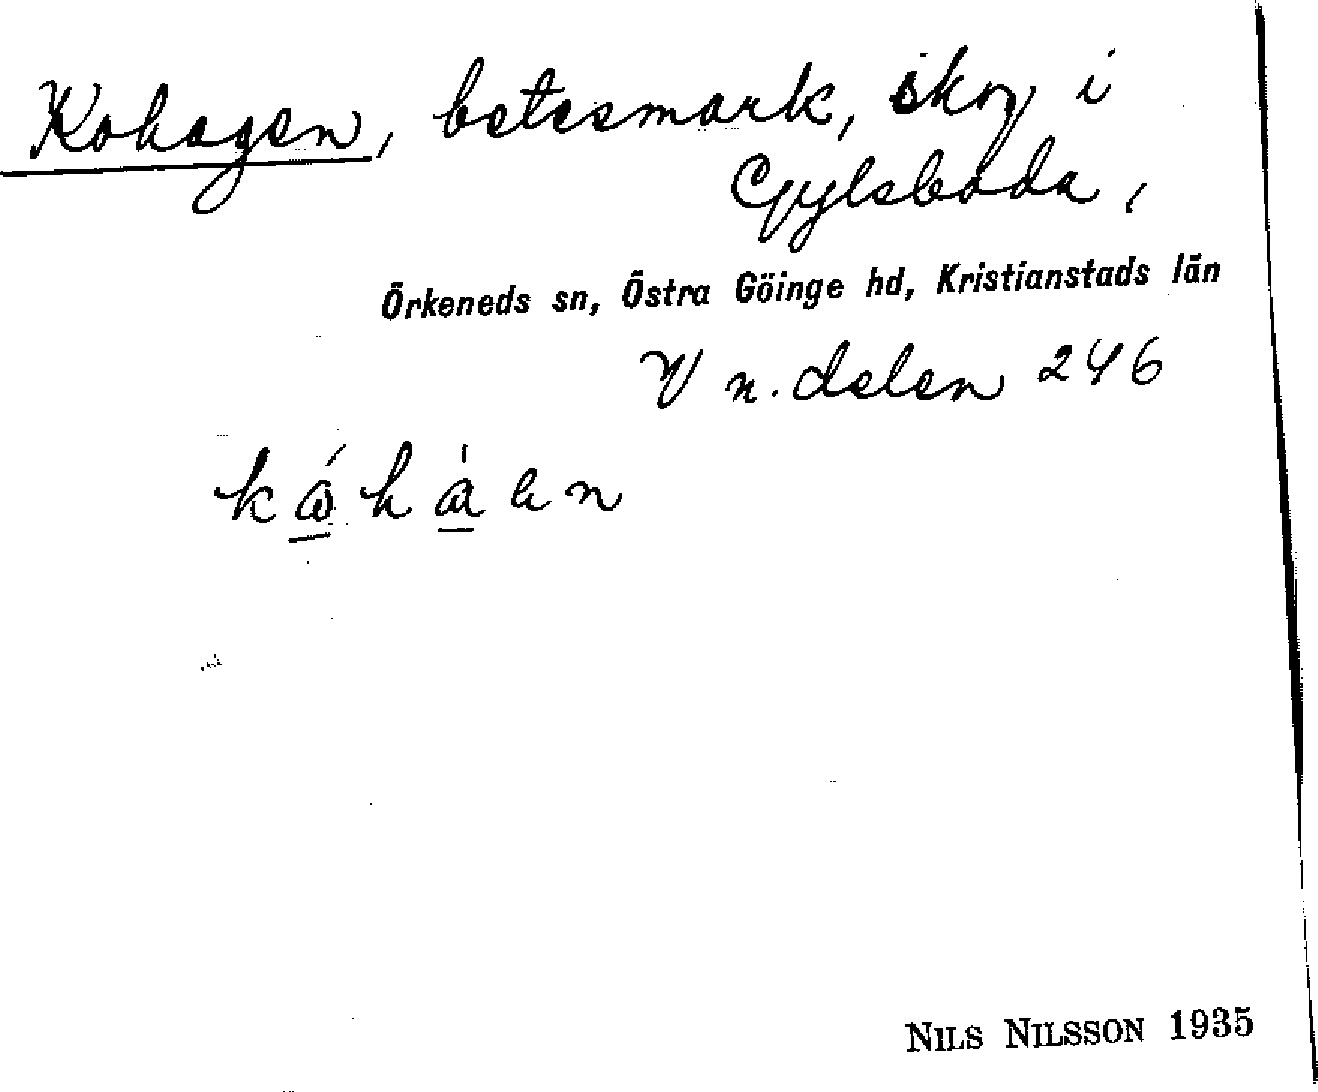 Kohagen, betesmark, skog i
Gylsboda,
Örkeneds sn, Östra Göinge hd, Kristianstads län
V n. delen 246
NILS NILSSON 1935